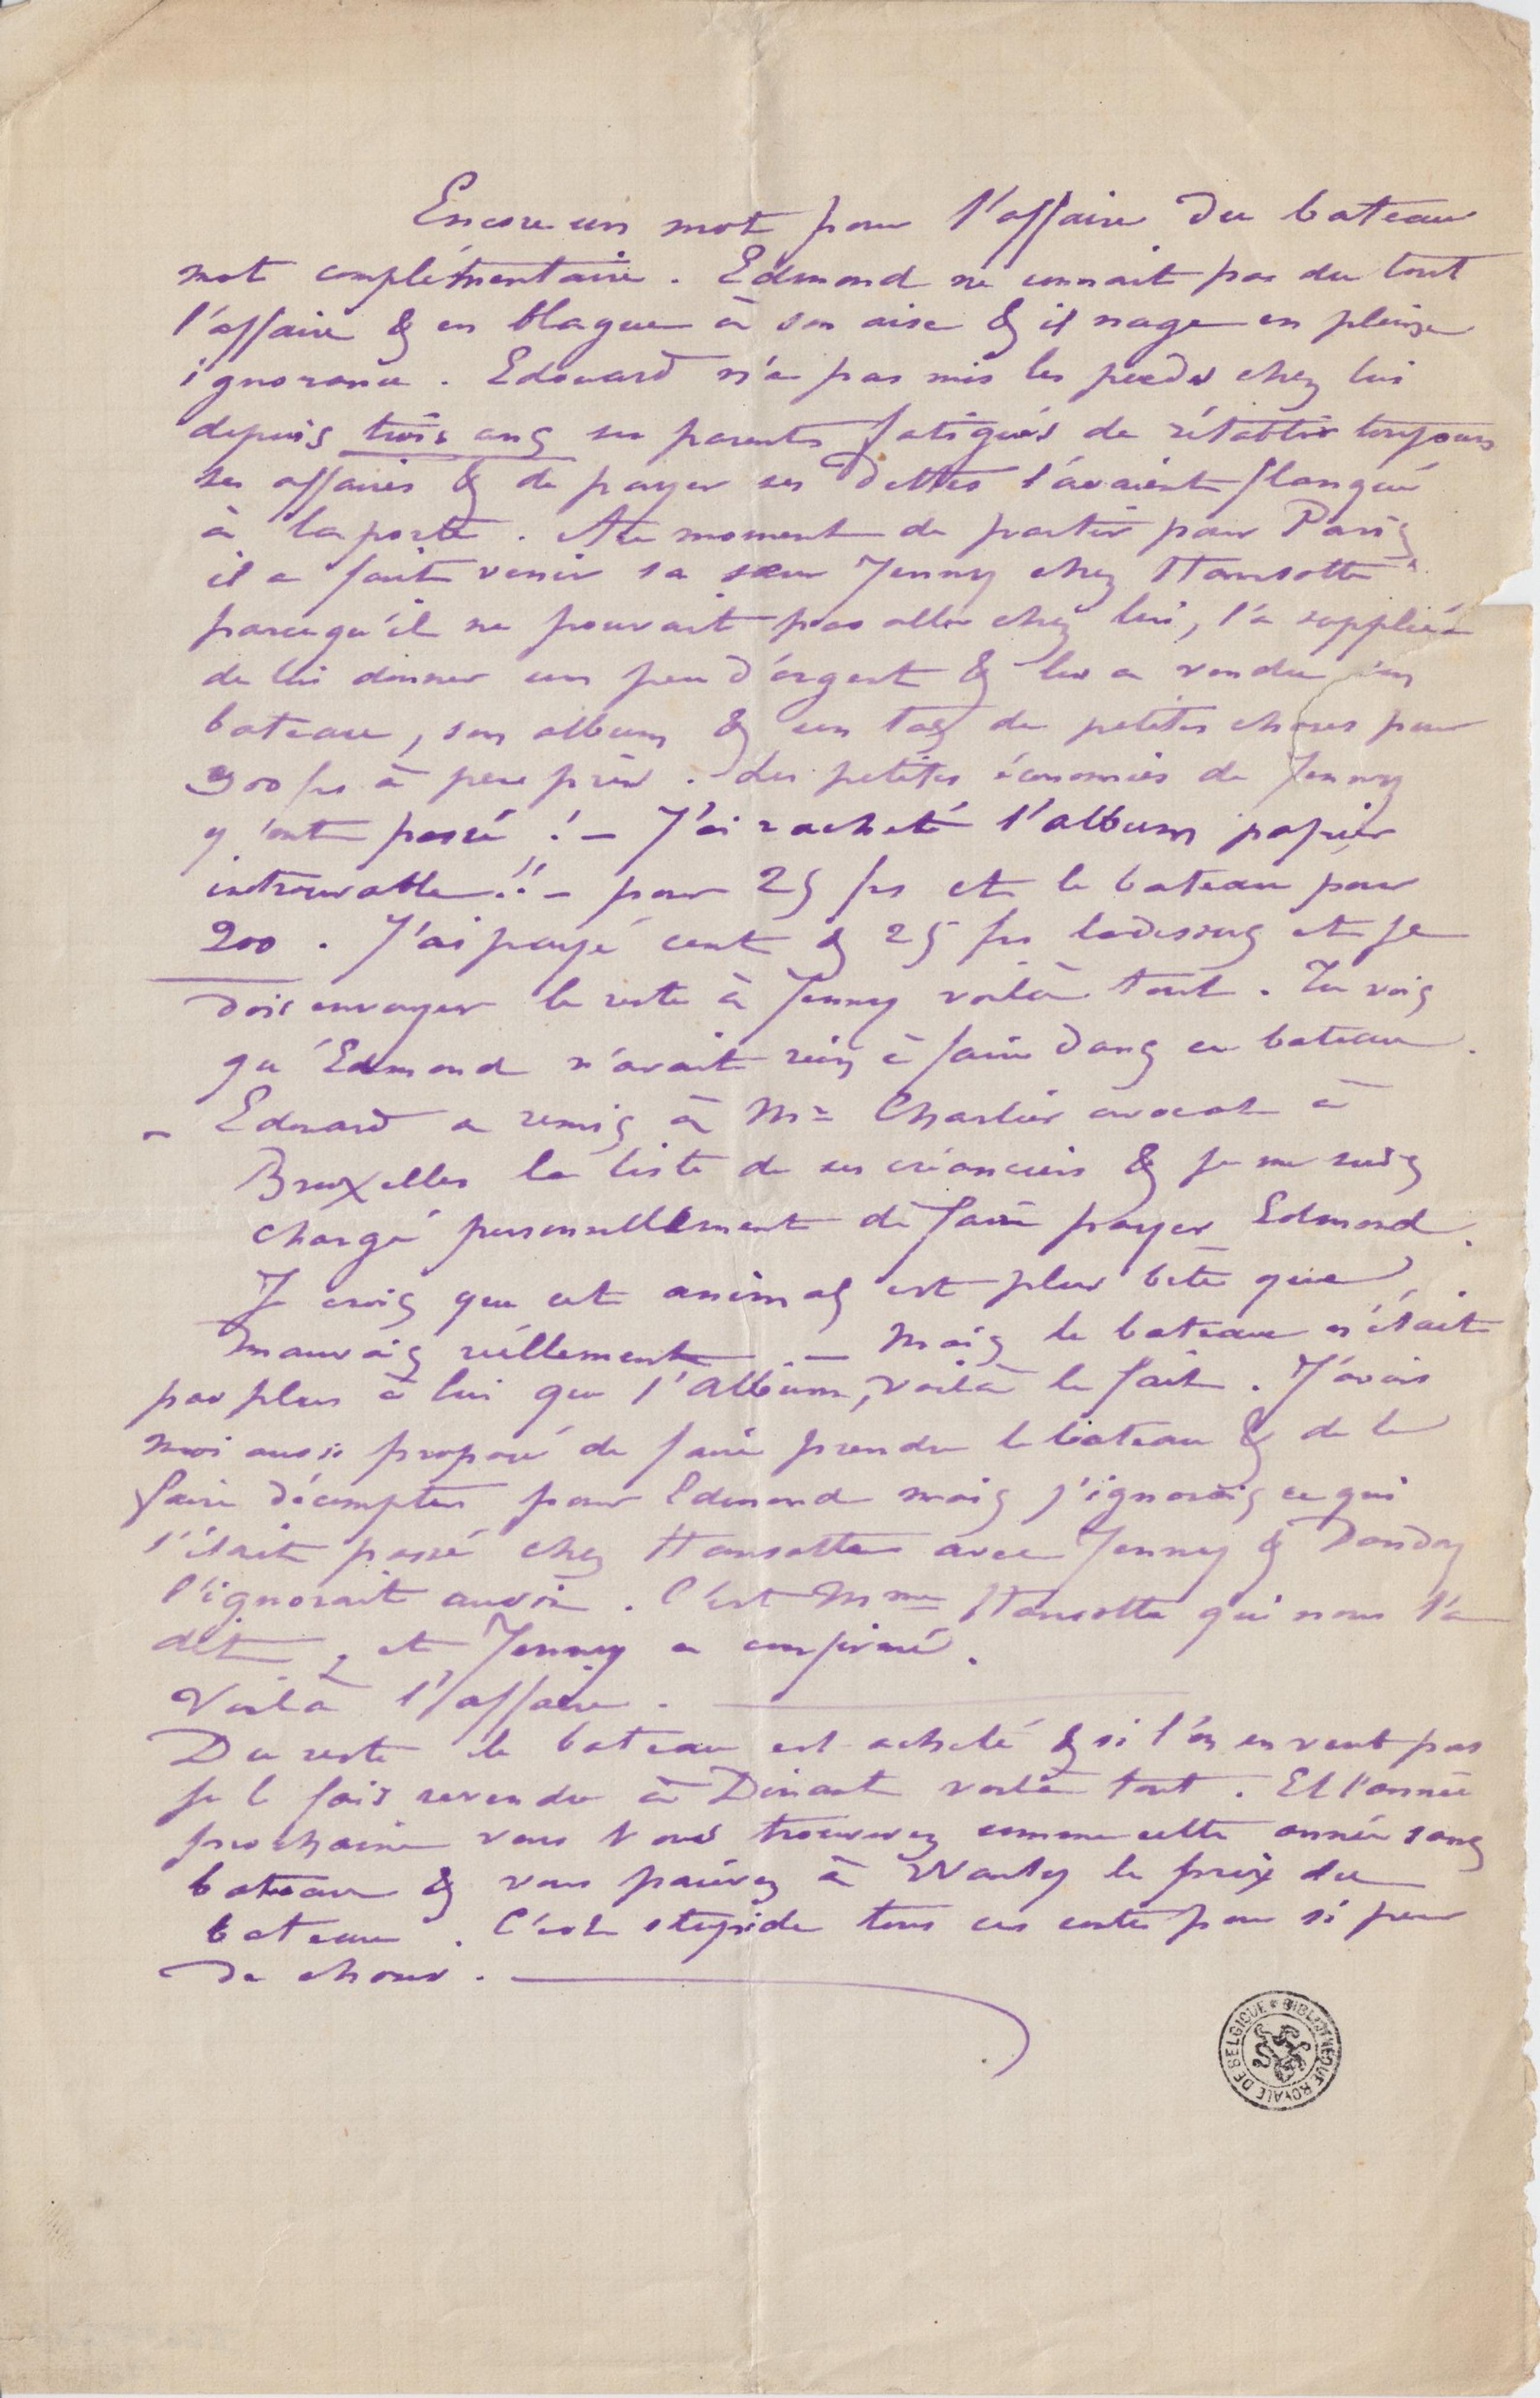 Encore un mot pour l'affaire du bateau
mot complémentaire. Edmond ne connait pas du tout
l'affaire & en blague à son aise & il nage en pleine
ignorance. Edouard n'a pas mis les pieds chez lui
depuis trois ans ses parents fatigués de rétablir toujours
ses affaires & de payer ses dettes l'avaient flanqué
à la porte. Au moment de partir pour Paris
il a fait venir sa sœur Jenny chez Hansotte
parcequ'il ne pouvait pas aller chez lui, l'a suppliée
de lui donner un peu d'argent & lui a vendu son
bateau, son album & un tas de petites choses pour
300 frs à peu près. Les petites économies de Jenny
y ont passé ! – J'ai racheté l'album papier
introuvable !! – pour 25 frs et le bateau pour
200. J'ai payé cent & 25 frs ladessus et je
dois envoyer le reste à Jenny voilà tout. Tu vois
qu'Edmond n'avait rien à faire dans ce bateau.
– Edouard a remis à Me Charlier avocat à
Bruxelles la liste de ses créanciers & je me suis
chargé personnellement de faire payer Edmond.
Je crois que cet animal est plus bête que
mauvais réellement – Mais le bateau n'était
pas plus à lui que l'album, voilà le fait. J'avais
moi aussi proposé de faire prendre le bateau & de le
faire décompter pour Edmond mais j'ignorais ce qui
s'était passé chez Hansotte avec Jenny & Dandoy
l'ignorait aussi. C'est Mme Hansotte qui nous l'a
dit, et Jenny a confirmé.
Voilà l'affaire.
Du reste le bateau est acheté & si l'on en veut pas
je le fais revendre à Dinant voilà tout. Et l'année
prochaine vous vous trouverez comme cette année sans
bateau & vous paierez à Warly le prix du
bateau. C'est stupide tous ces contes pour si peu
de choses.
BIBLIOTHEQUE ROYALE DE BELGIQUE